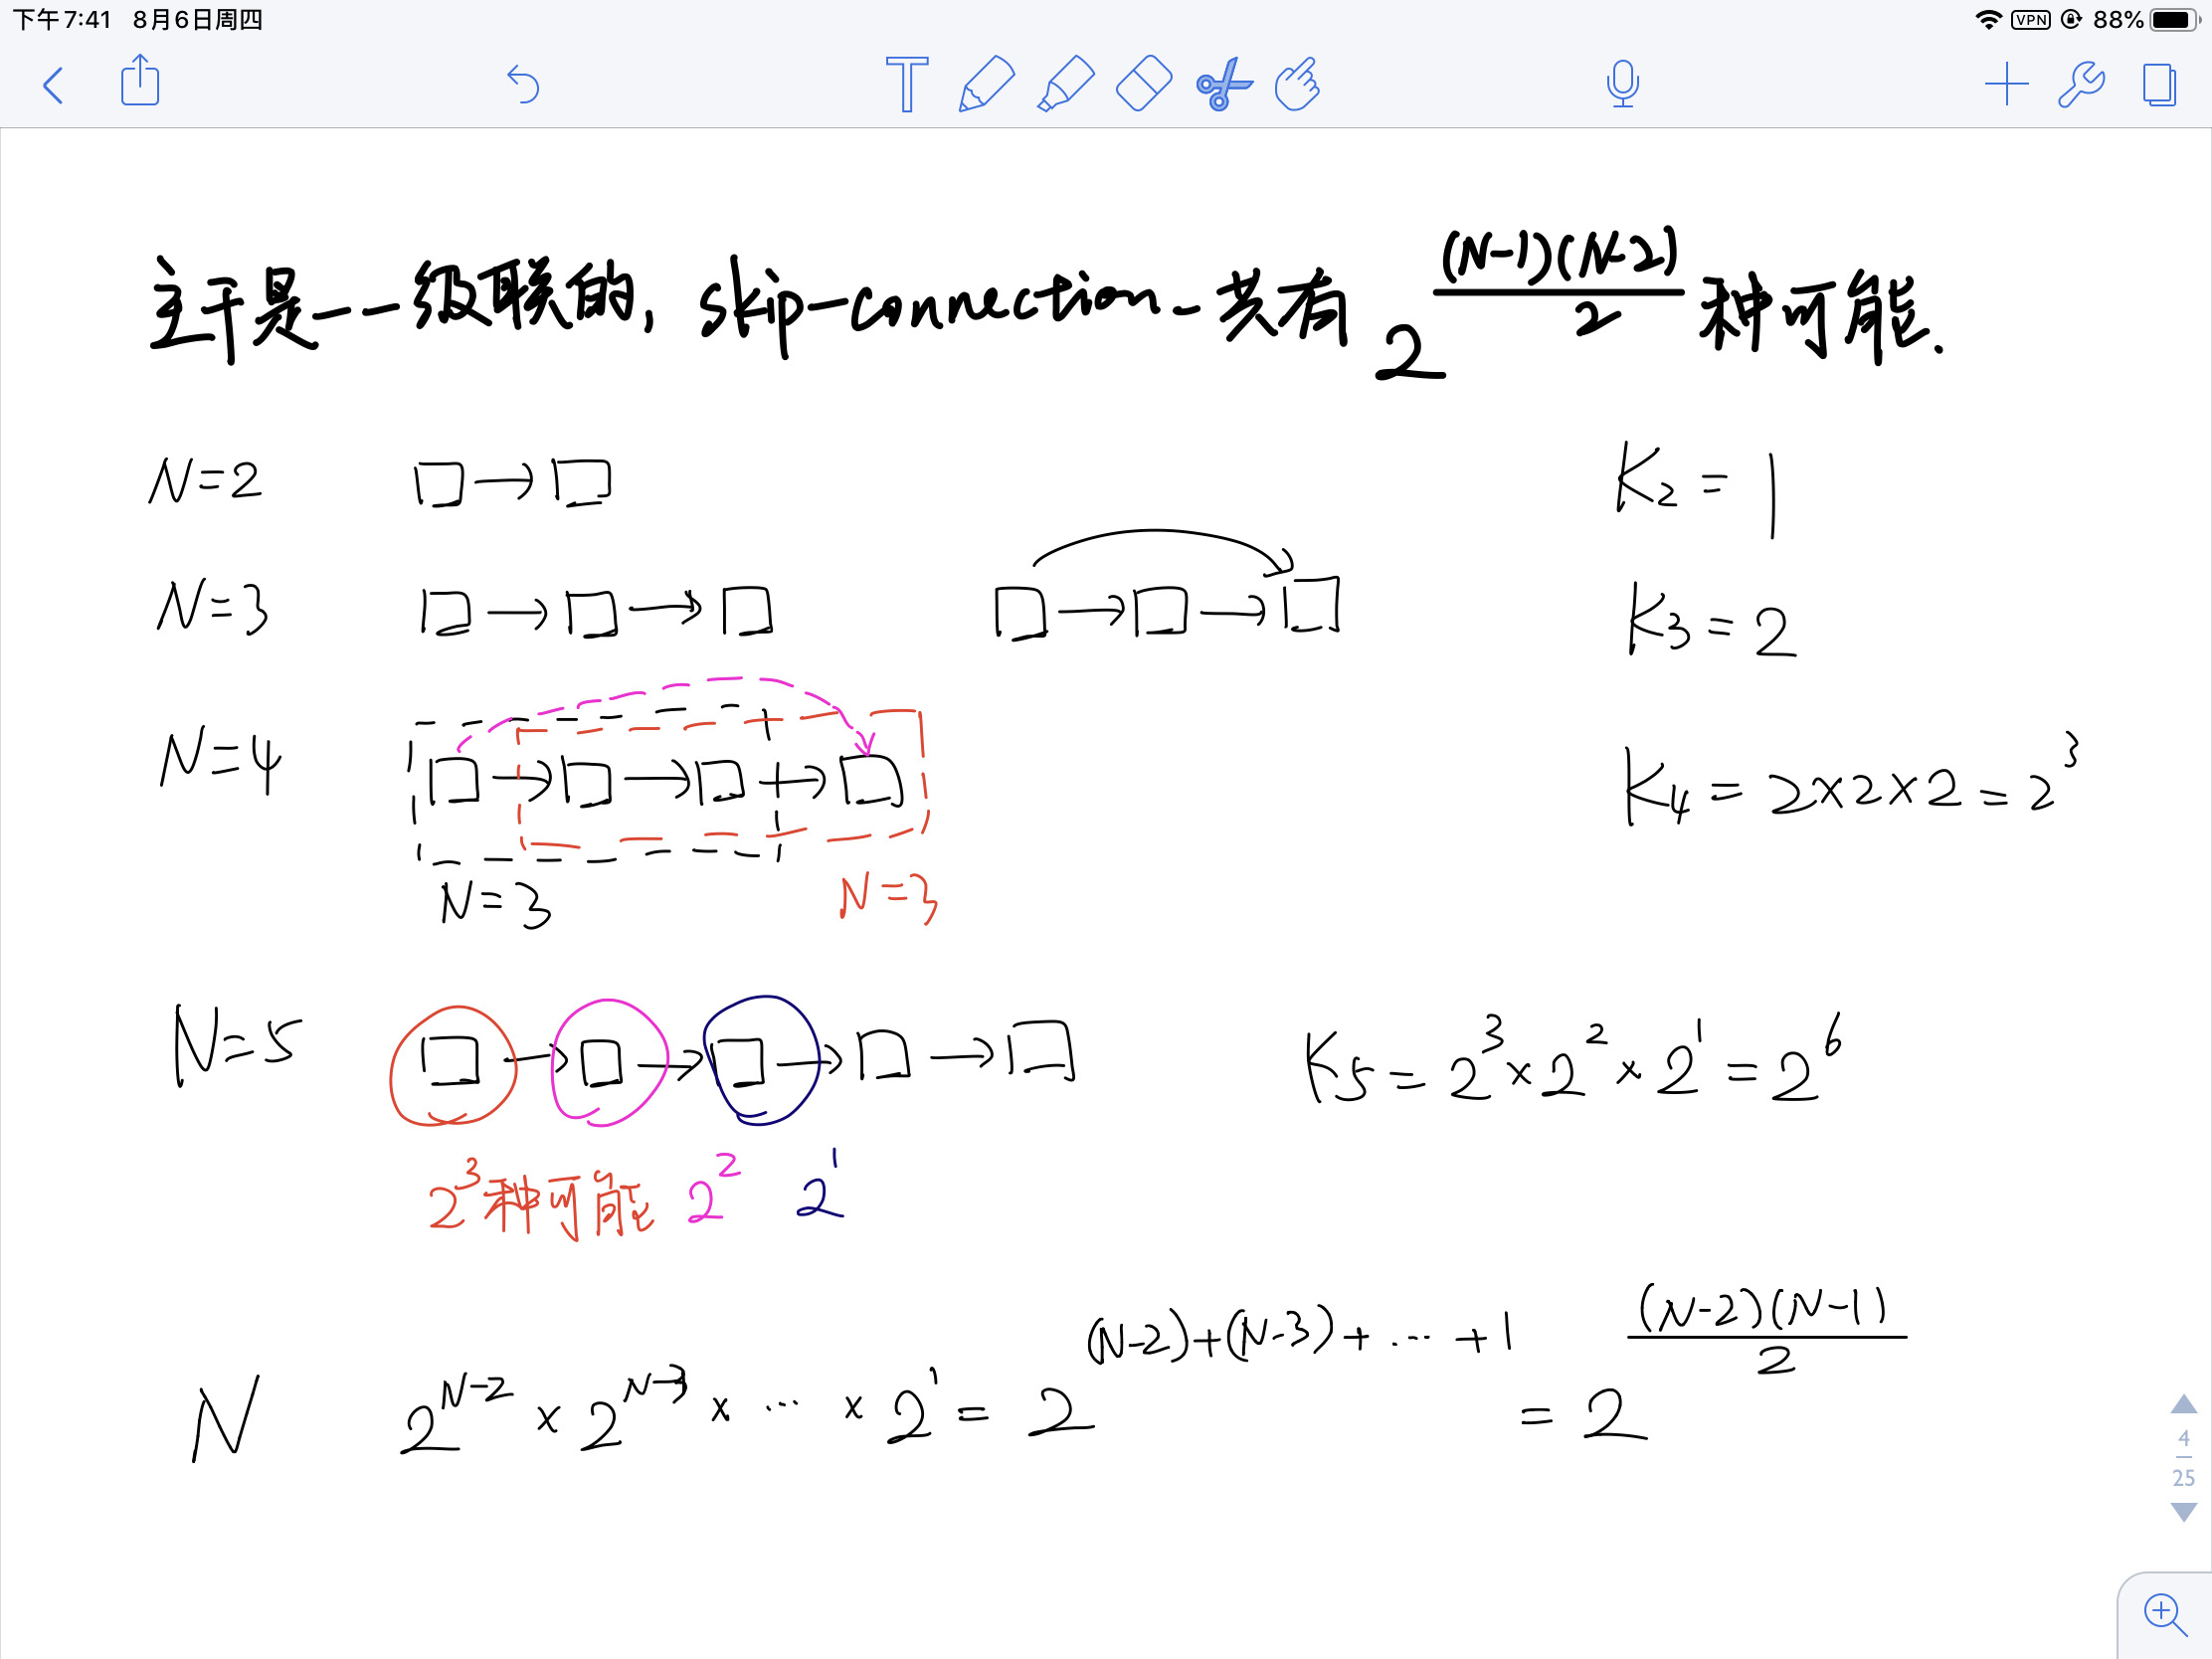 下午7:41 8月6日周四 VPN 88%
T
主干是一一级联的, skip-connection一共有 2^((N-1)(N-2)/2) 种可能.
N=2 □→□ K₂ = 1
N=3 □→□→□ □→□→□ K₃ = 2
N=4 □→□→□→□ K₄ = 2×2×2 = 2³
N=3 N=3
N=5 □→□→□→□→□ K₅ = 2³×2²×2¹ = 2⁶
2³种可能 2² 2¹
N 2^(N-2) × 2^(N-3) × ... × 2¹ = 2^((N-2)+(N-3)+ ... +1) = 2^((N-2)(N-1)/2)
4
25